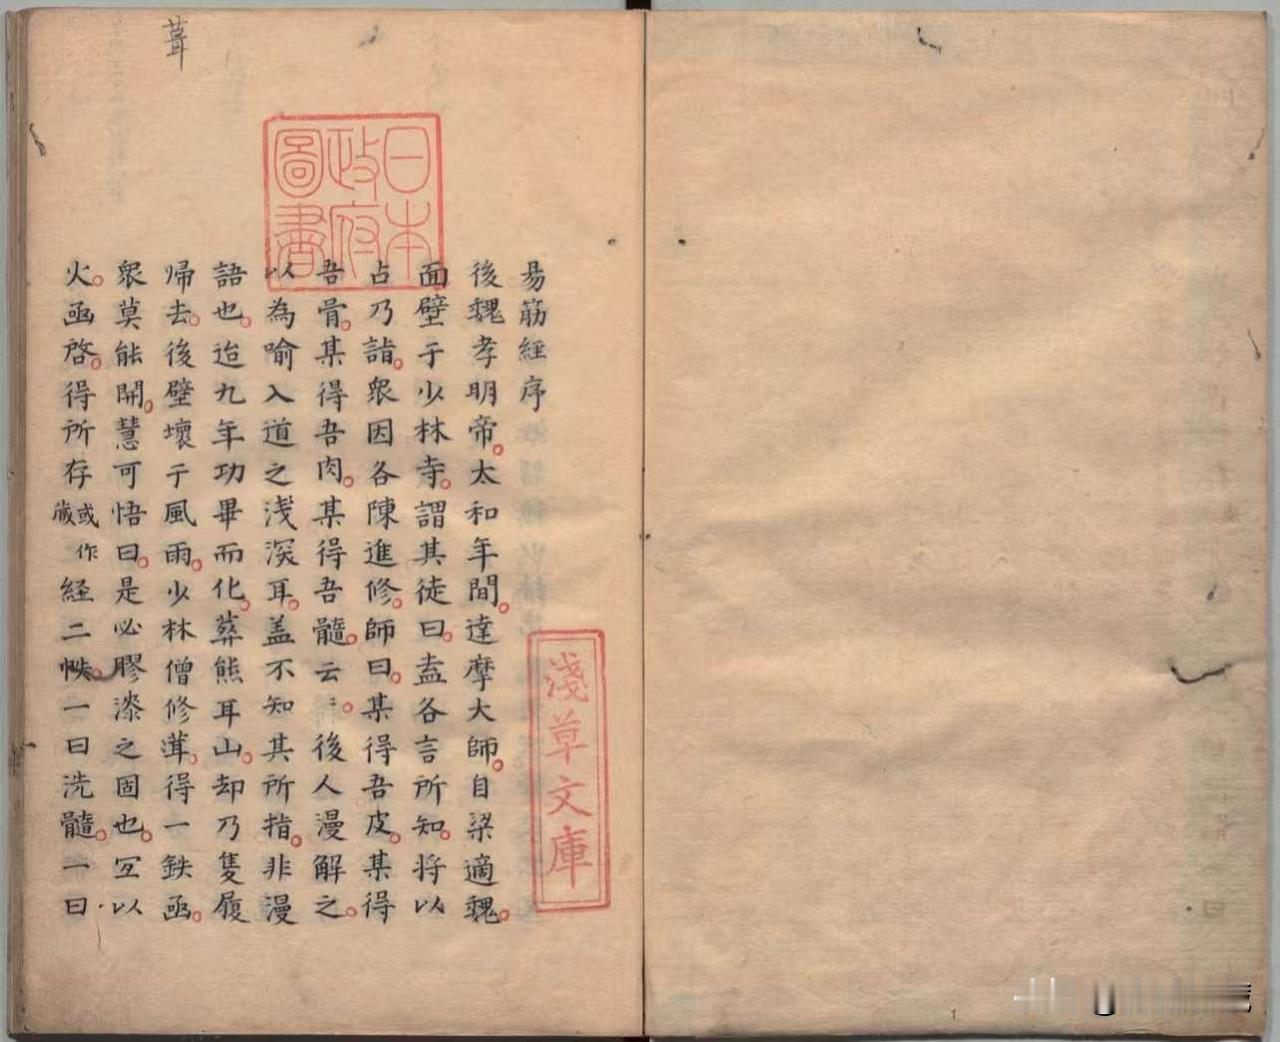 葺
日本
政府
圖書
易筋經序
後魏孝明帝。太和年間。達摩大師。自梁適魏。
面壁于少林寺。謂其徒曰。盍各言所知。将以
占乃詣。眾因各陳進修。師曰。某得吾皮。某得
吾骨。某得吾肉。某得吾髓。云〻。後人漫解之。
以為喻入道之浅深耳。盖不知其所指。非漫
語也。迨九年功畢而化。葬熊耳山。却乃隻履
帰去。後壁壞于風雨。少林僧修葺。得一鉄函。
眾莫能開。慧可悟曰。是必膠漆之固也。宜以
火。函啓。得所存或作蔵経二帙。一曰洗髓。一曰
淺草文庫